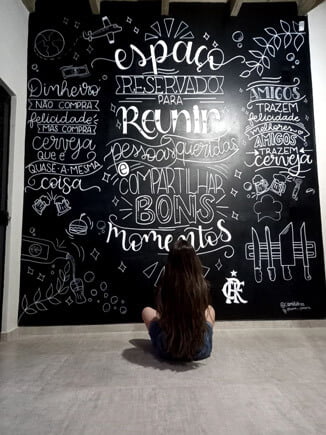 Dinheiro
NÃO COMPRA
felicidade
MAS COMPRA
cerveja
QUE É
QUASE A MESMA
coisa
espaço
RESERVADO
PARA
Reunir
pessoas queridas
E
COMPARTILHAR
BONS
momentos
AMIGOS
TRAZEM
felicidade
melhores
AMIGOS
TRAZEM
cerveja
CRF